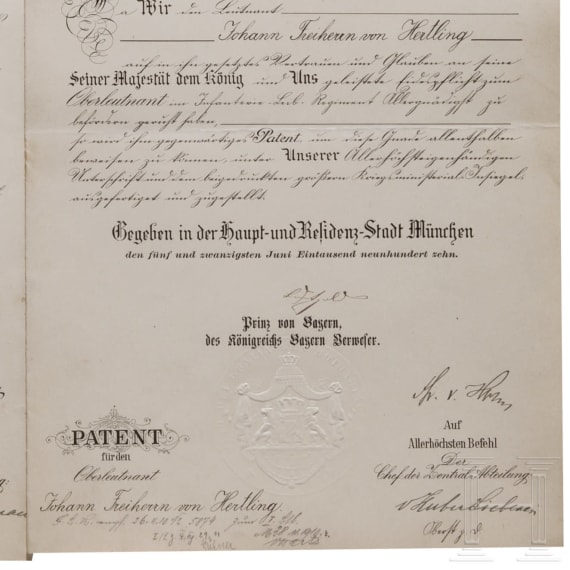 Da Wir den Leutnant
Johann Freiherrn von Hertling
auf in ihn gesetztes Vertrauen und Glauben an seine
Seiner Majestät dem König und Uns geleistete Eidespflicht zum
Oberleutnant im Infanterie-Leib-Regiment Allergnädigst zu
befördern geruht haben,
so wird ihm gegenwärtiges Patent, um diese Gnade allenthalben
beweisen zu können, unter Unserer Allerhöchsteigenhändigen
Unterschrift und dem beigedruckten größern Kriegsministerial-Insiegel
ausgefertiget und zugestellt.
Gegeben in der Haupt-und Residenz-Stadt München
den fünf und zwanzigsten Juni Eintausend neunhundert zehn.
Prinz von Bayern,
des Königreichs Bayern Verweser.
PATENT
für den
Oberleutnant
Johann Freiherrn von Hertling.
Auf
Allerhöchsten Befehl
Der
Chef der Zentral-Abteilung
Oberst z. D.